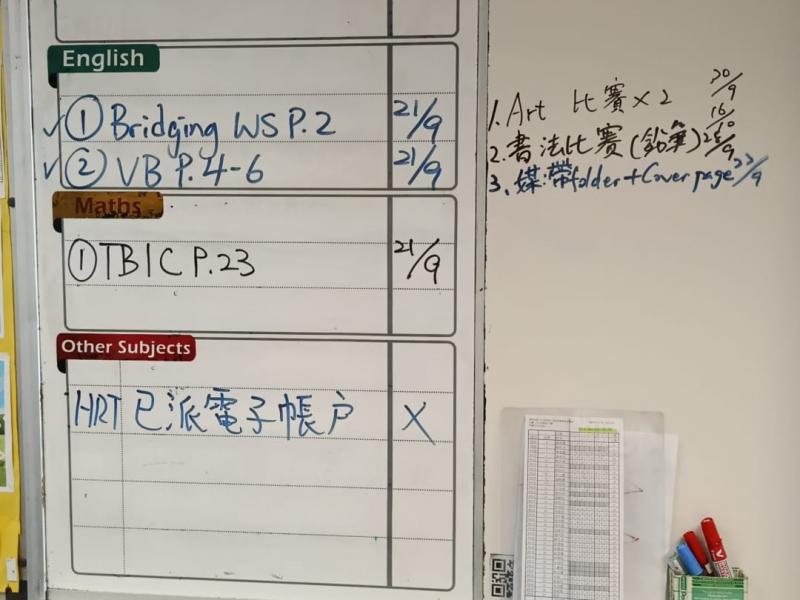 English
✓ ① Bridging WS P.2 21/9
✓ ② VB P.4-6 21/9
Maths
① TB1C P.23 21/9
Other Subjects
HRT 已派電子帳户 X
1. Art 比賽 x 2 30/9
16/10
2. 書法比賽(鉛筆) 28/9
3. 媒:帶folder+Cover page 22/9